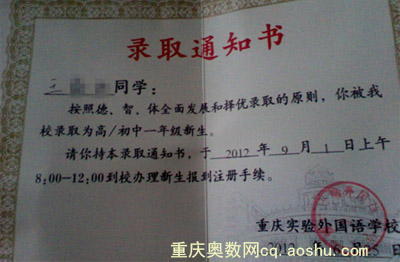 录取通知书
王 同学：
按照德、智、体全面发展和择优录取的原则，你被我
校录取为高/初中一年级新生。
请你持本录取通知书，于 2012 年 9 月 1 日上午
8:00—12:00到校办理新生报到注册手续。
重庆实验外国语学校
2012 年 月 25 日
重庆奥数网cq.aoshu.com